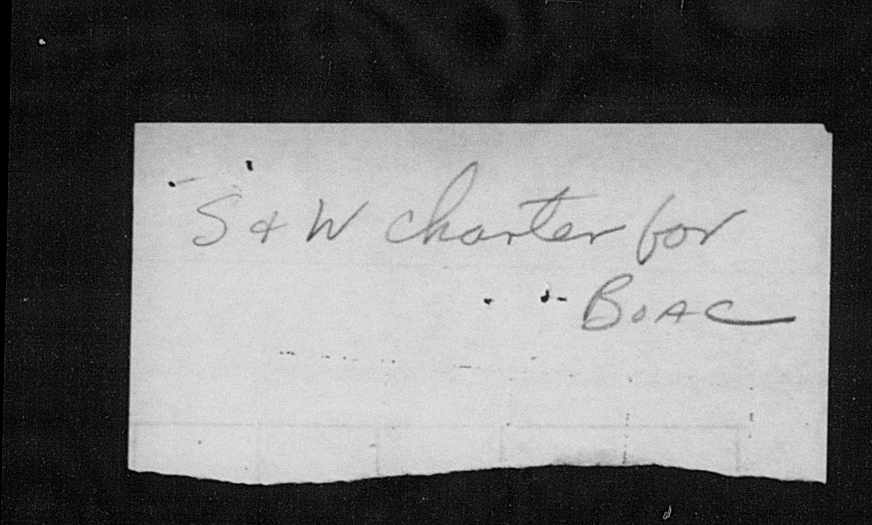 S & W charter for
BOAC